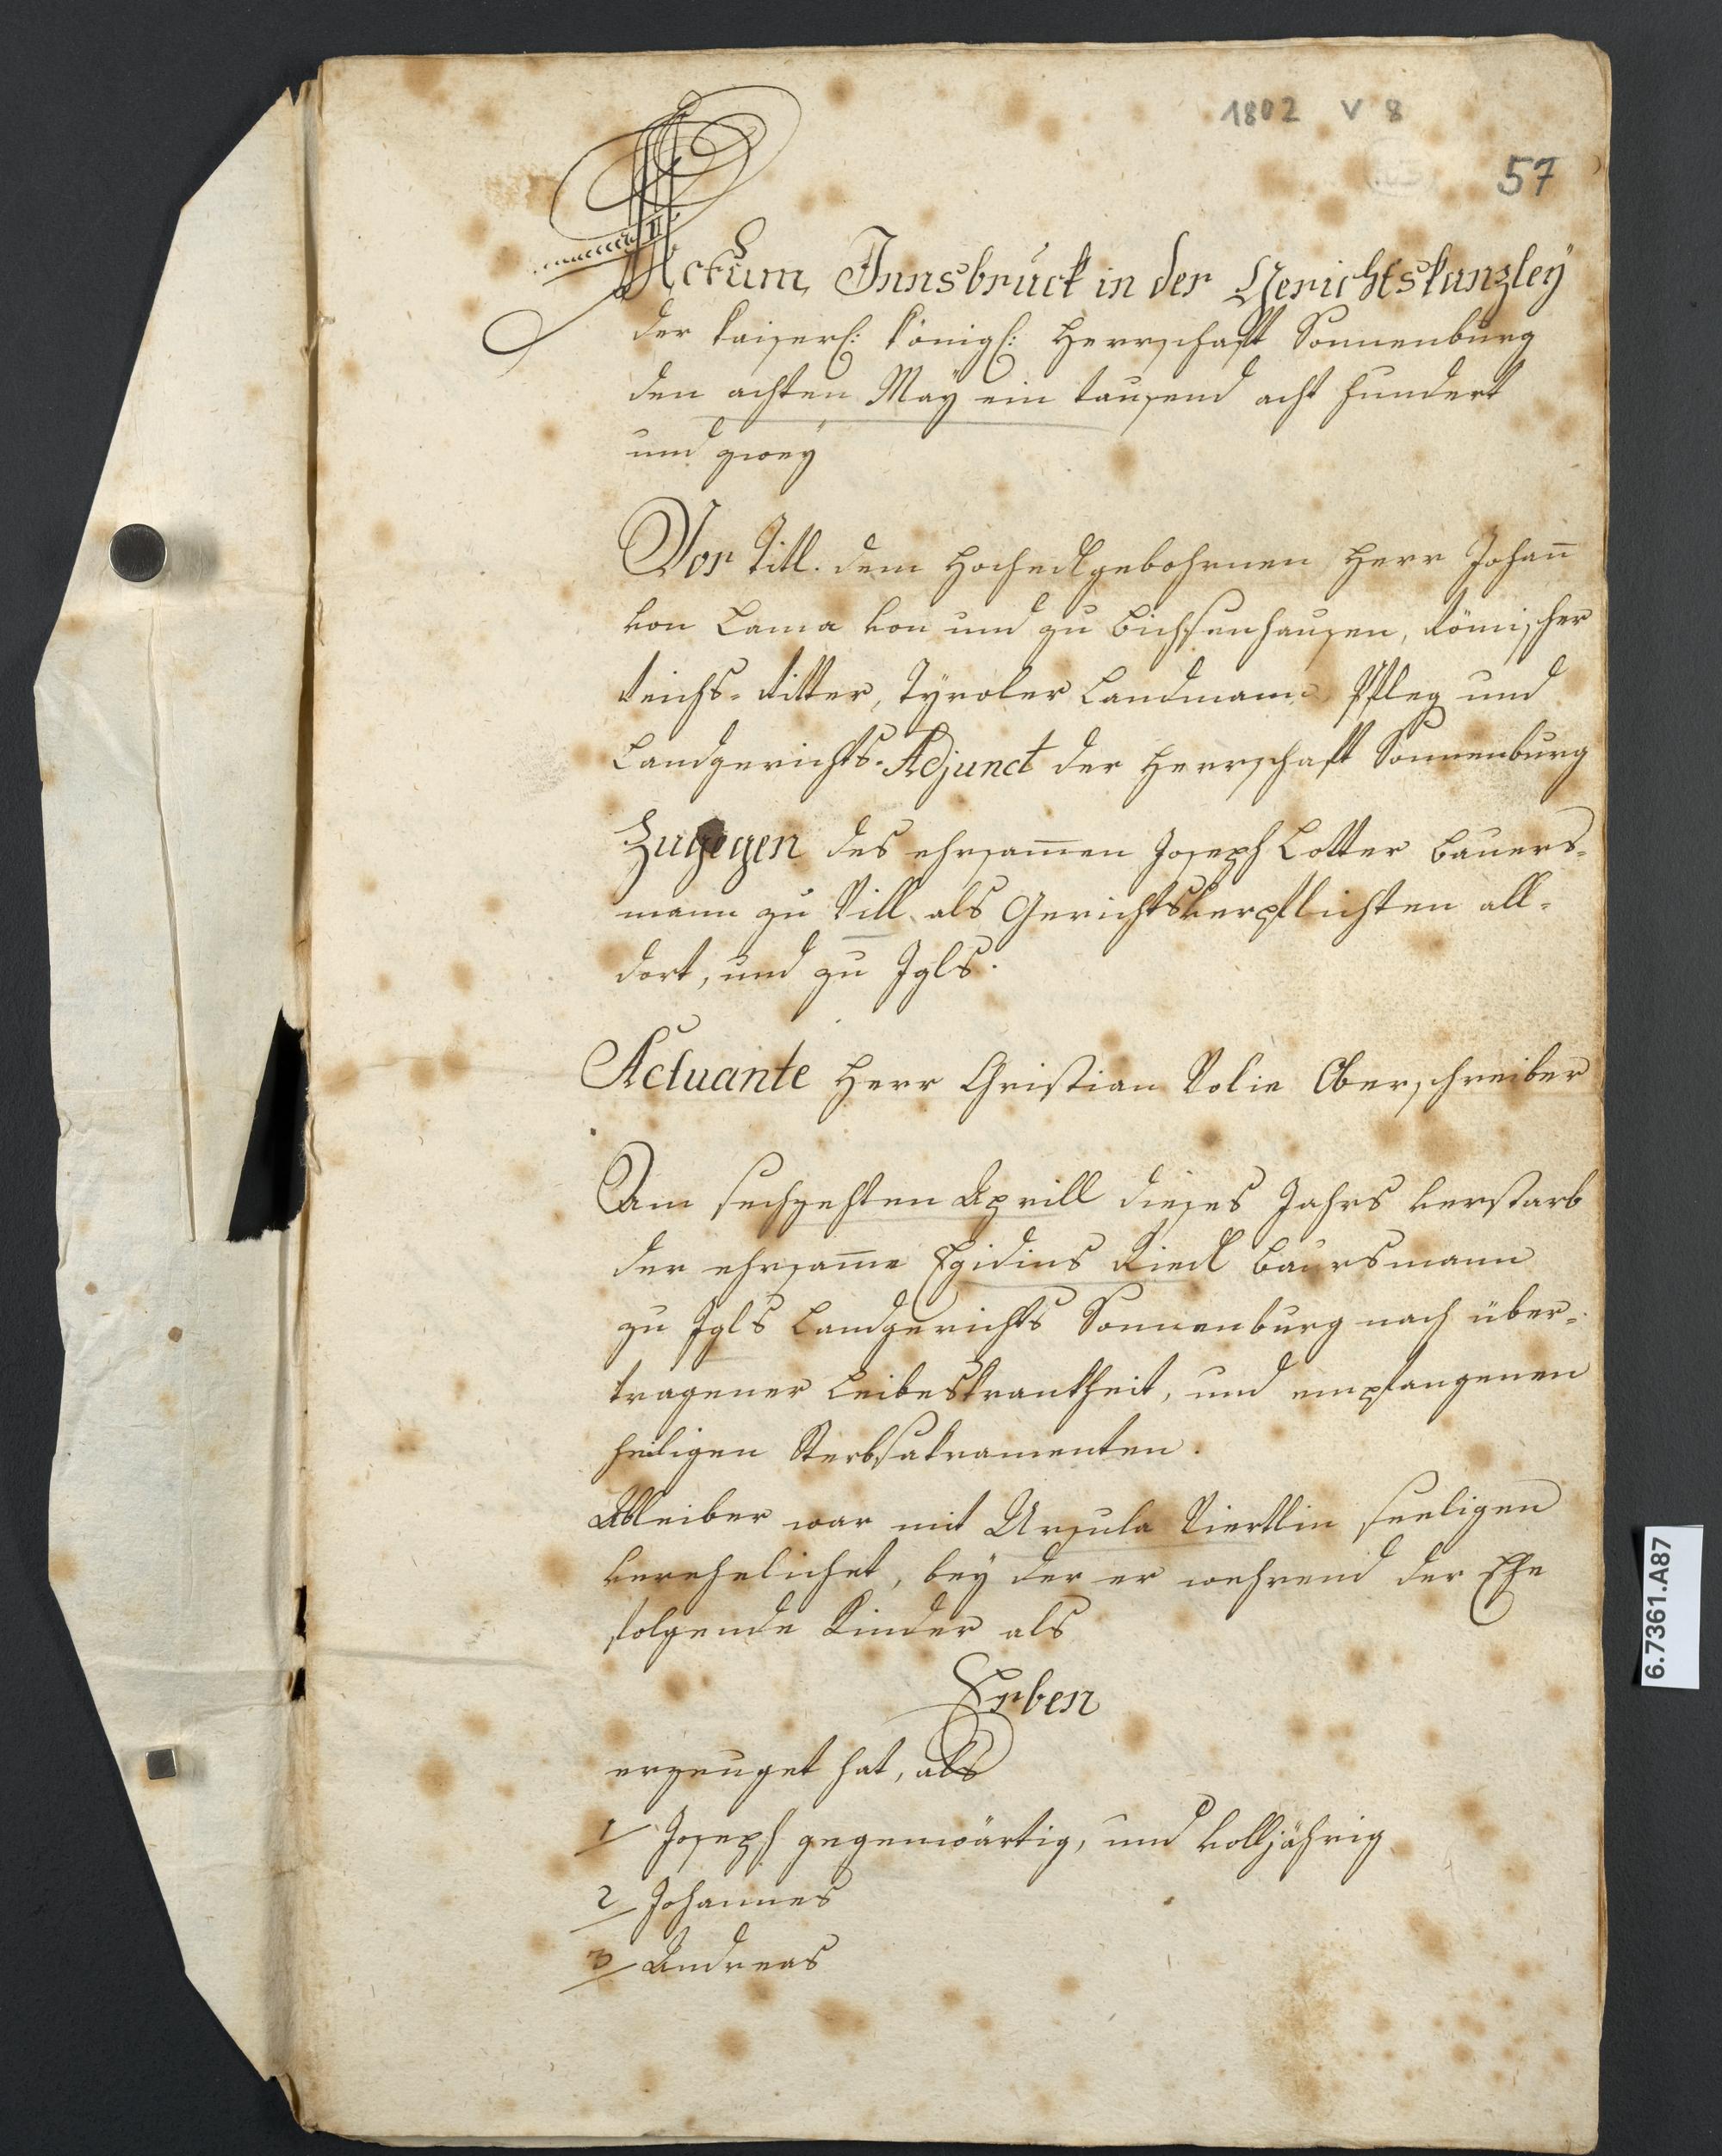 1802 V 8
57
Actum Innsbruck in der Gerichtskanzley
der kaiserl: königl: Herrschaft Sonnenburg
den achten May ein tausend acht hundert
und zwey
Vor Titl. dem Hochedlgebohrnen Herr Johan̄
von Lama von und zu Bichsenhausen, Römischer
Reichs-Ritter, Tyroler Landmann Pfleg und
Landgerichts-Adjunct der Herrschaft Sonnenburg
Zugegen des ehrsam̄en Joseph Lotter Bauers=
mann zu Vill als Gerichtsverpflichten all=
dort, und zu Igls.
Actuante Herr Christian Nolie Oberschreiber
Am sechzehten Aprill dieses Jahrs verstarb
der ehrsam̄e Egidius Riedl Baursmann
zu Igls Landgerichts Sonnenburg nach über=
tragener Leibeskrankheit, und empfangenen
heiligen Sterbsakramenten.
Ableiber war mit Ursula Viertlin seeligen
verehelichet, bey der er wehrend der Ehe
folgende Kinder als
Erben
erzeuget hat, als
1/ Joseph gegenwärtig, und volljährig
2/ Johannes
3/ Andreas
6.7361.A87